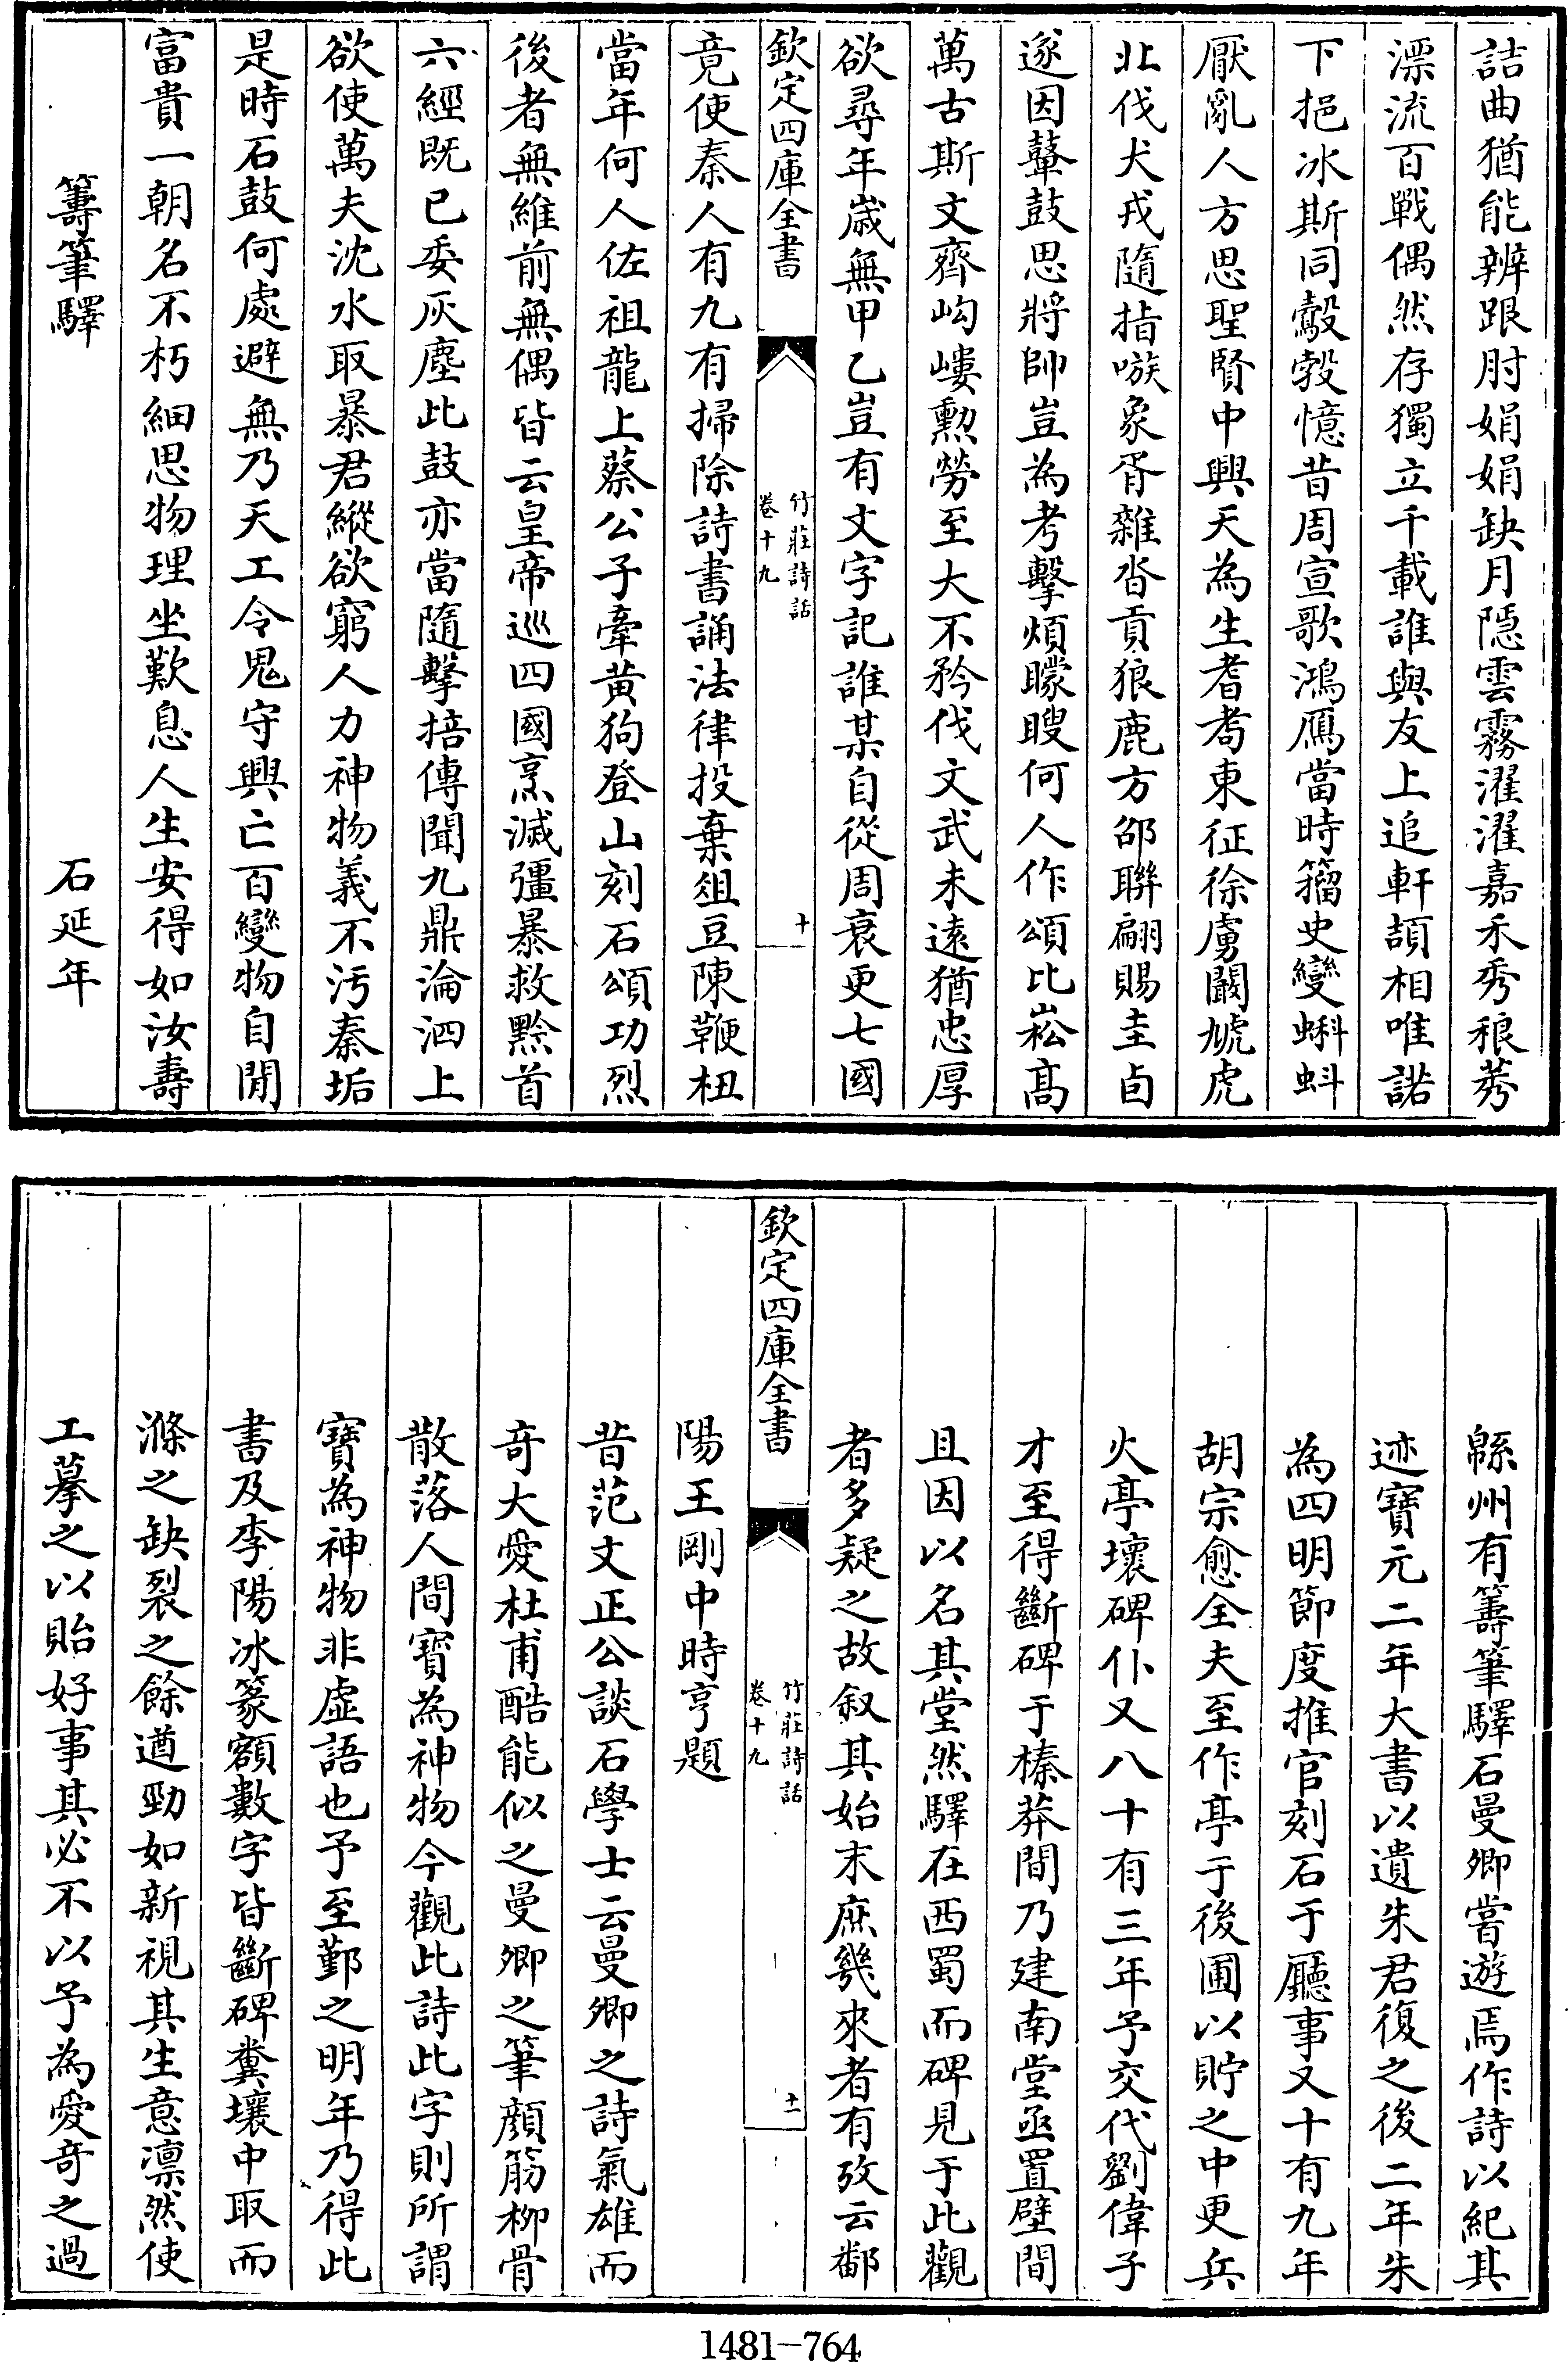 詰曲猶能辨跟肘娟娟缺月隱雲霧濯濯嘉禾秀稂莠
漂流百戰偶然存獨立千載誰與友上追軒頡相唯諾
下挹冰斯同鷇㝅憶昔周宣歌鴻鴈當時籀史變蝌蚪
厭亂人方思聖賢中興天為生耆耈東征徐虜闞虓虎
北伐犬戎隨指嗾象胥雜沓貢狼鹿方邵聯翩賜圭卣
遂因鼙鼓思將帥豈為考擊煩矇瞍何人作頌比崧髙
萬古斯文齊岣嶁勲勞至大不矜伐文武未遠猶忠厚
欲尋年嵗無甲乙豈有文字記誰某自從周衰更七國
欽定四庫全書
竹莊詩話
卷十九
十
竟使秦人有九有掃除詩書誦法律投棄俎豆陳鞭杻
當年何人佐祖龍上蔡公子牽黄狗登山刻石頌功烈
後者無維前無偶皆云皇帝巡四國烹滅彊暴救黔首
六經既已委灰塵此鼓亦當隨擊掊傳聞九鼎淪泗上
欲使萬夫沈水取暴君縱欲窮人力神物義不汚秦垢
是時石鼓何處避無乃天工令鬼守興亡百變物自閒
富貴一朝名不朽細思物理坐歎息人生安得如汝壽
籌筆驛
石延年
緜州有籌筆驛石曼卿嘗遊焉作詩以紀其
迹寳元二年大書以遺朱君復之後二年朱
為四明節度推官刻石于廳事又十有九年
胡宗愈全夫至作亭于後圃以貯之中更兵
火亭壞碑仆又八十有三年予交代劉偉子
才至得斷碑于榛莽間乃建南堂亟置壁間
且因以名其堂然驛在西蜀而碑見于此觀
者多疑之故叙其始末庶幾來者有攷云鄱
欽定四庫全書
竹莊詩話
卷十九
十一
陽王剛中時亨題
昔范文正公談石學士云曼卿之詩氣雄而
奇大愛杜甫酷能似之曼卿之筆顔筋柳骨
散落人間寳為神物今觀此詩此字則所謂
寳為神物非虛語也予至鄞之明年乃得此
書及李陽冰篆額數字皆斷碑糞壤中取而
滌之缺裂之餘遒勁如新視其生意凛然使
工摹之以貽好事其必不以予為愛奇之過
1481-764